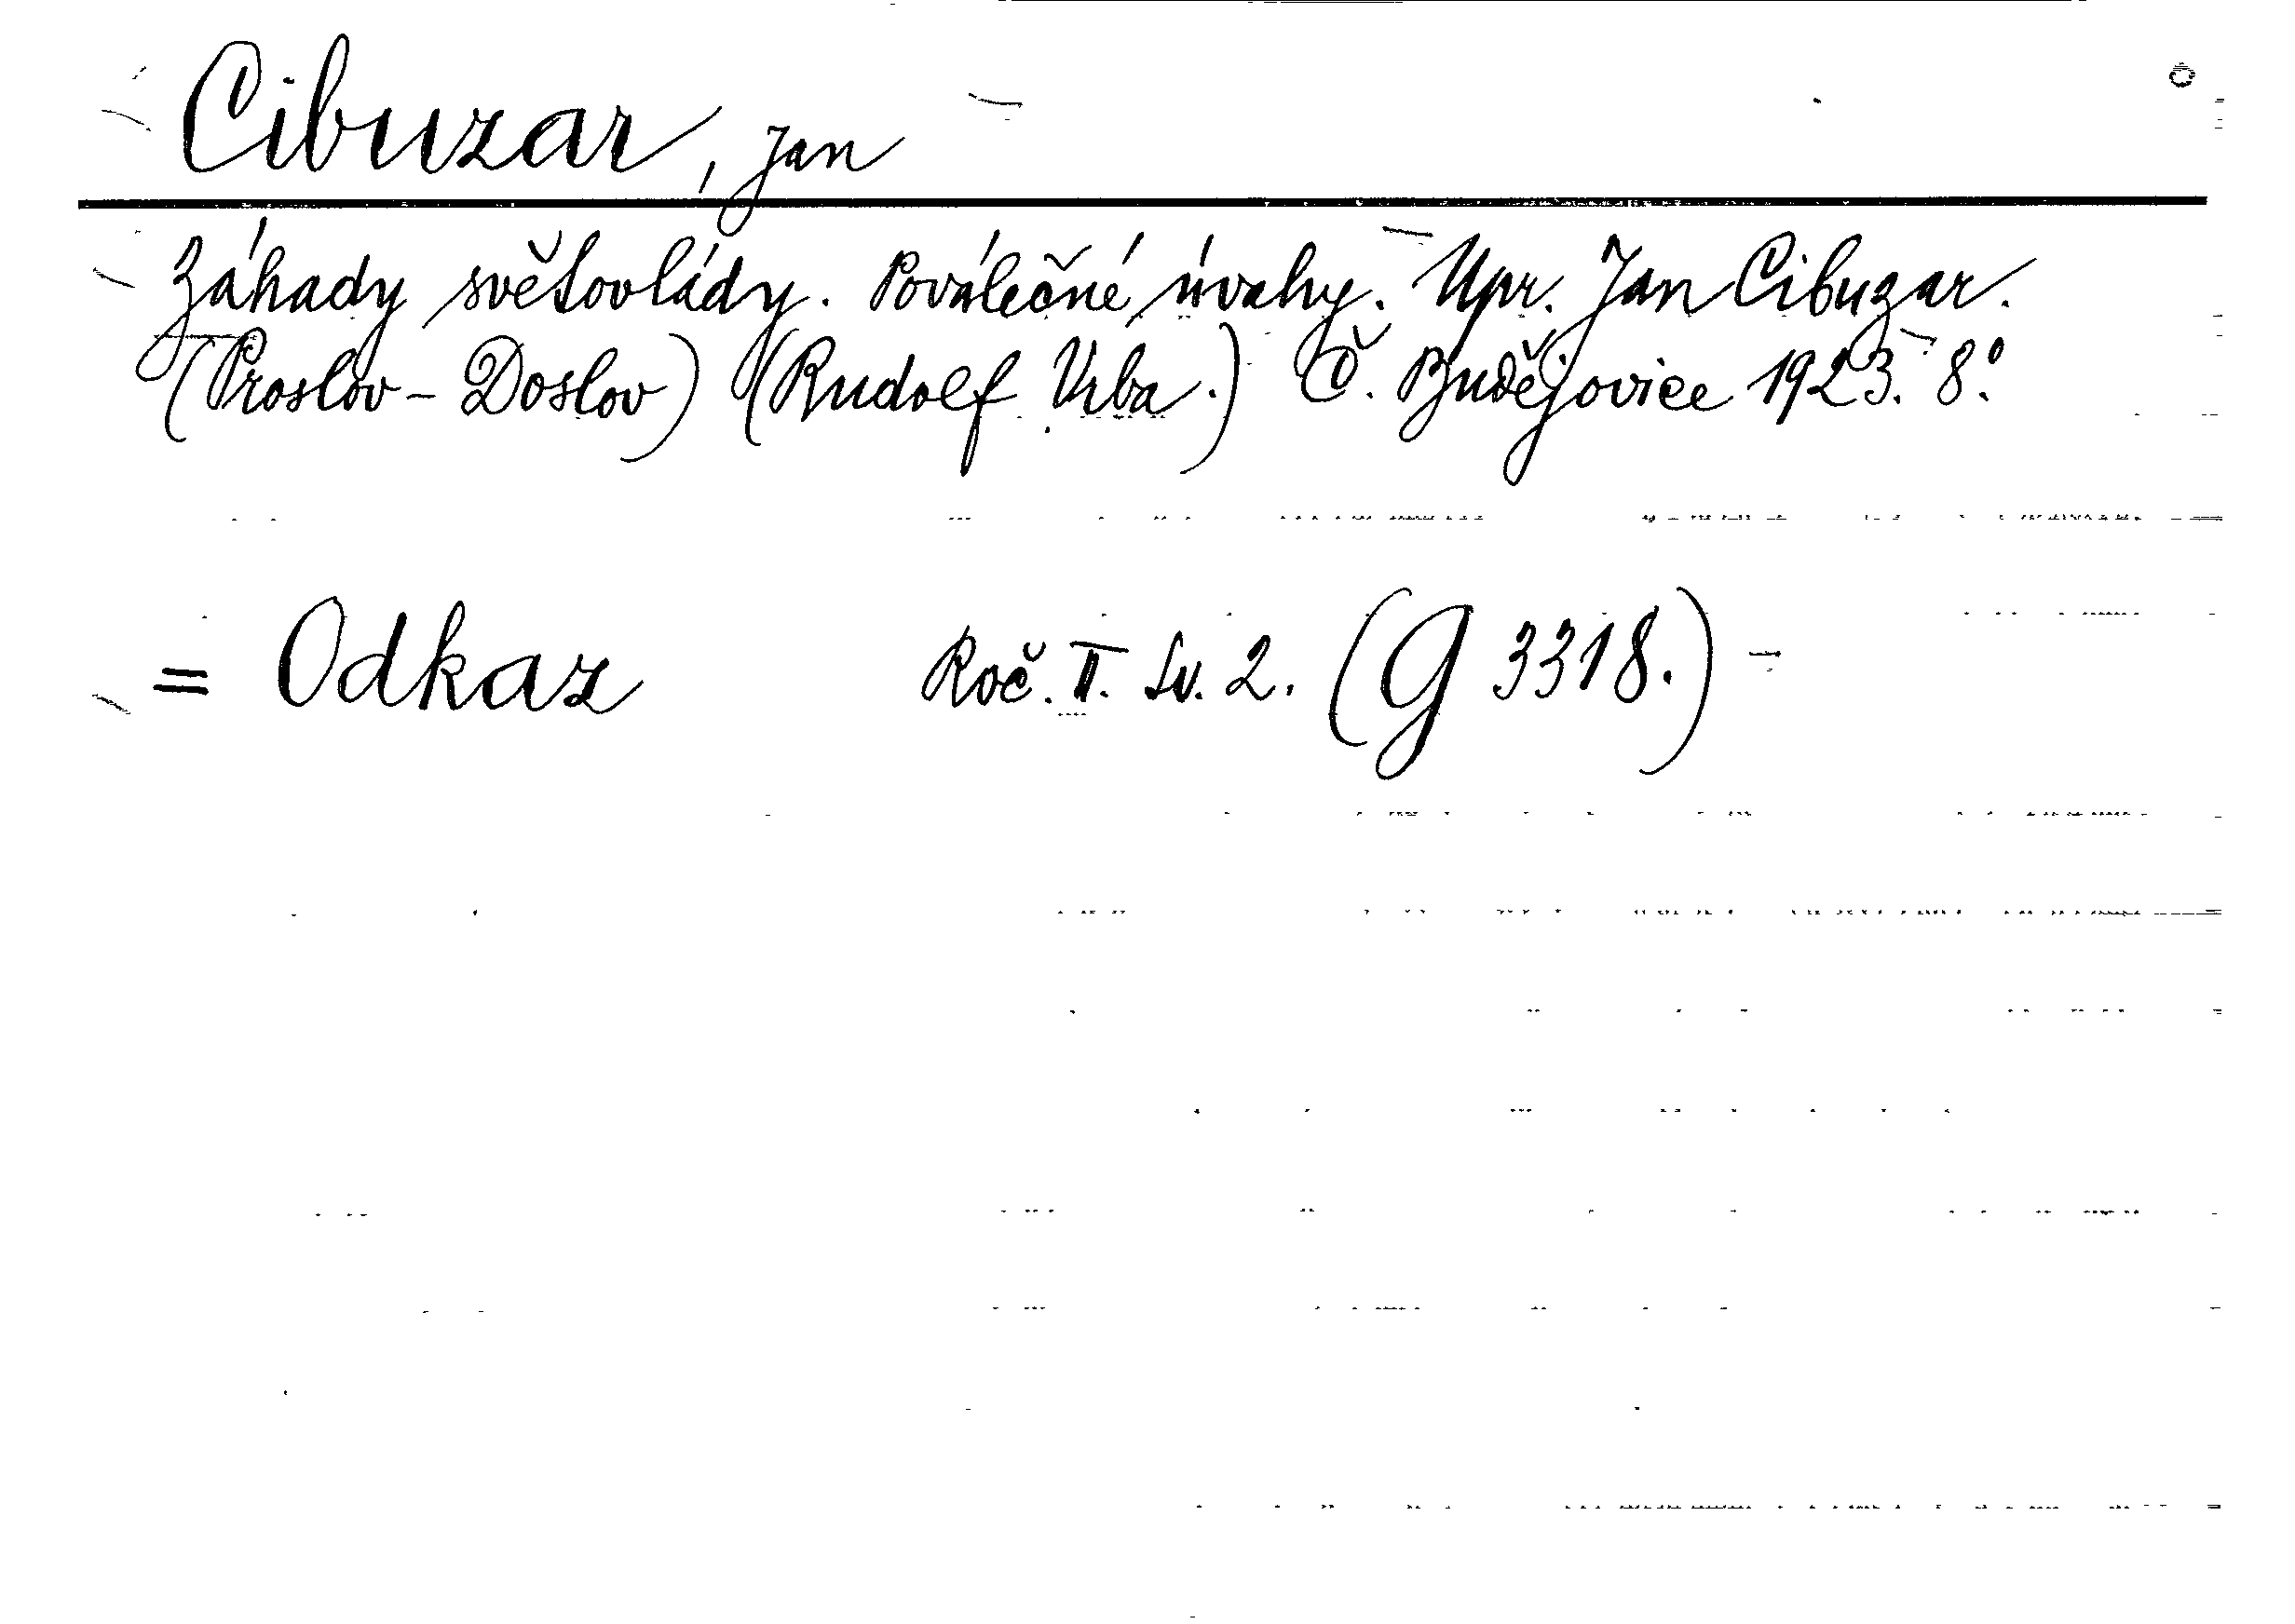 Cibuzar, Jan
Záhady světovlády. Poválečné úvahy. Upr. Jan Cibuzar.
(Proslov - Doslov) (Rudolf Vrba.) Č. Budějovice 1923. 8.°
= Odkaz Roč. II. Sv. 2. (G 3318.)